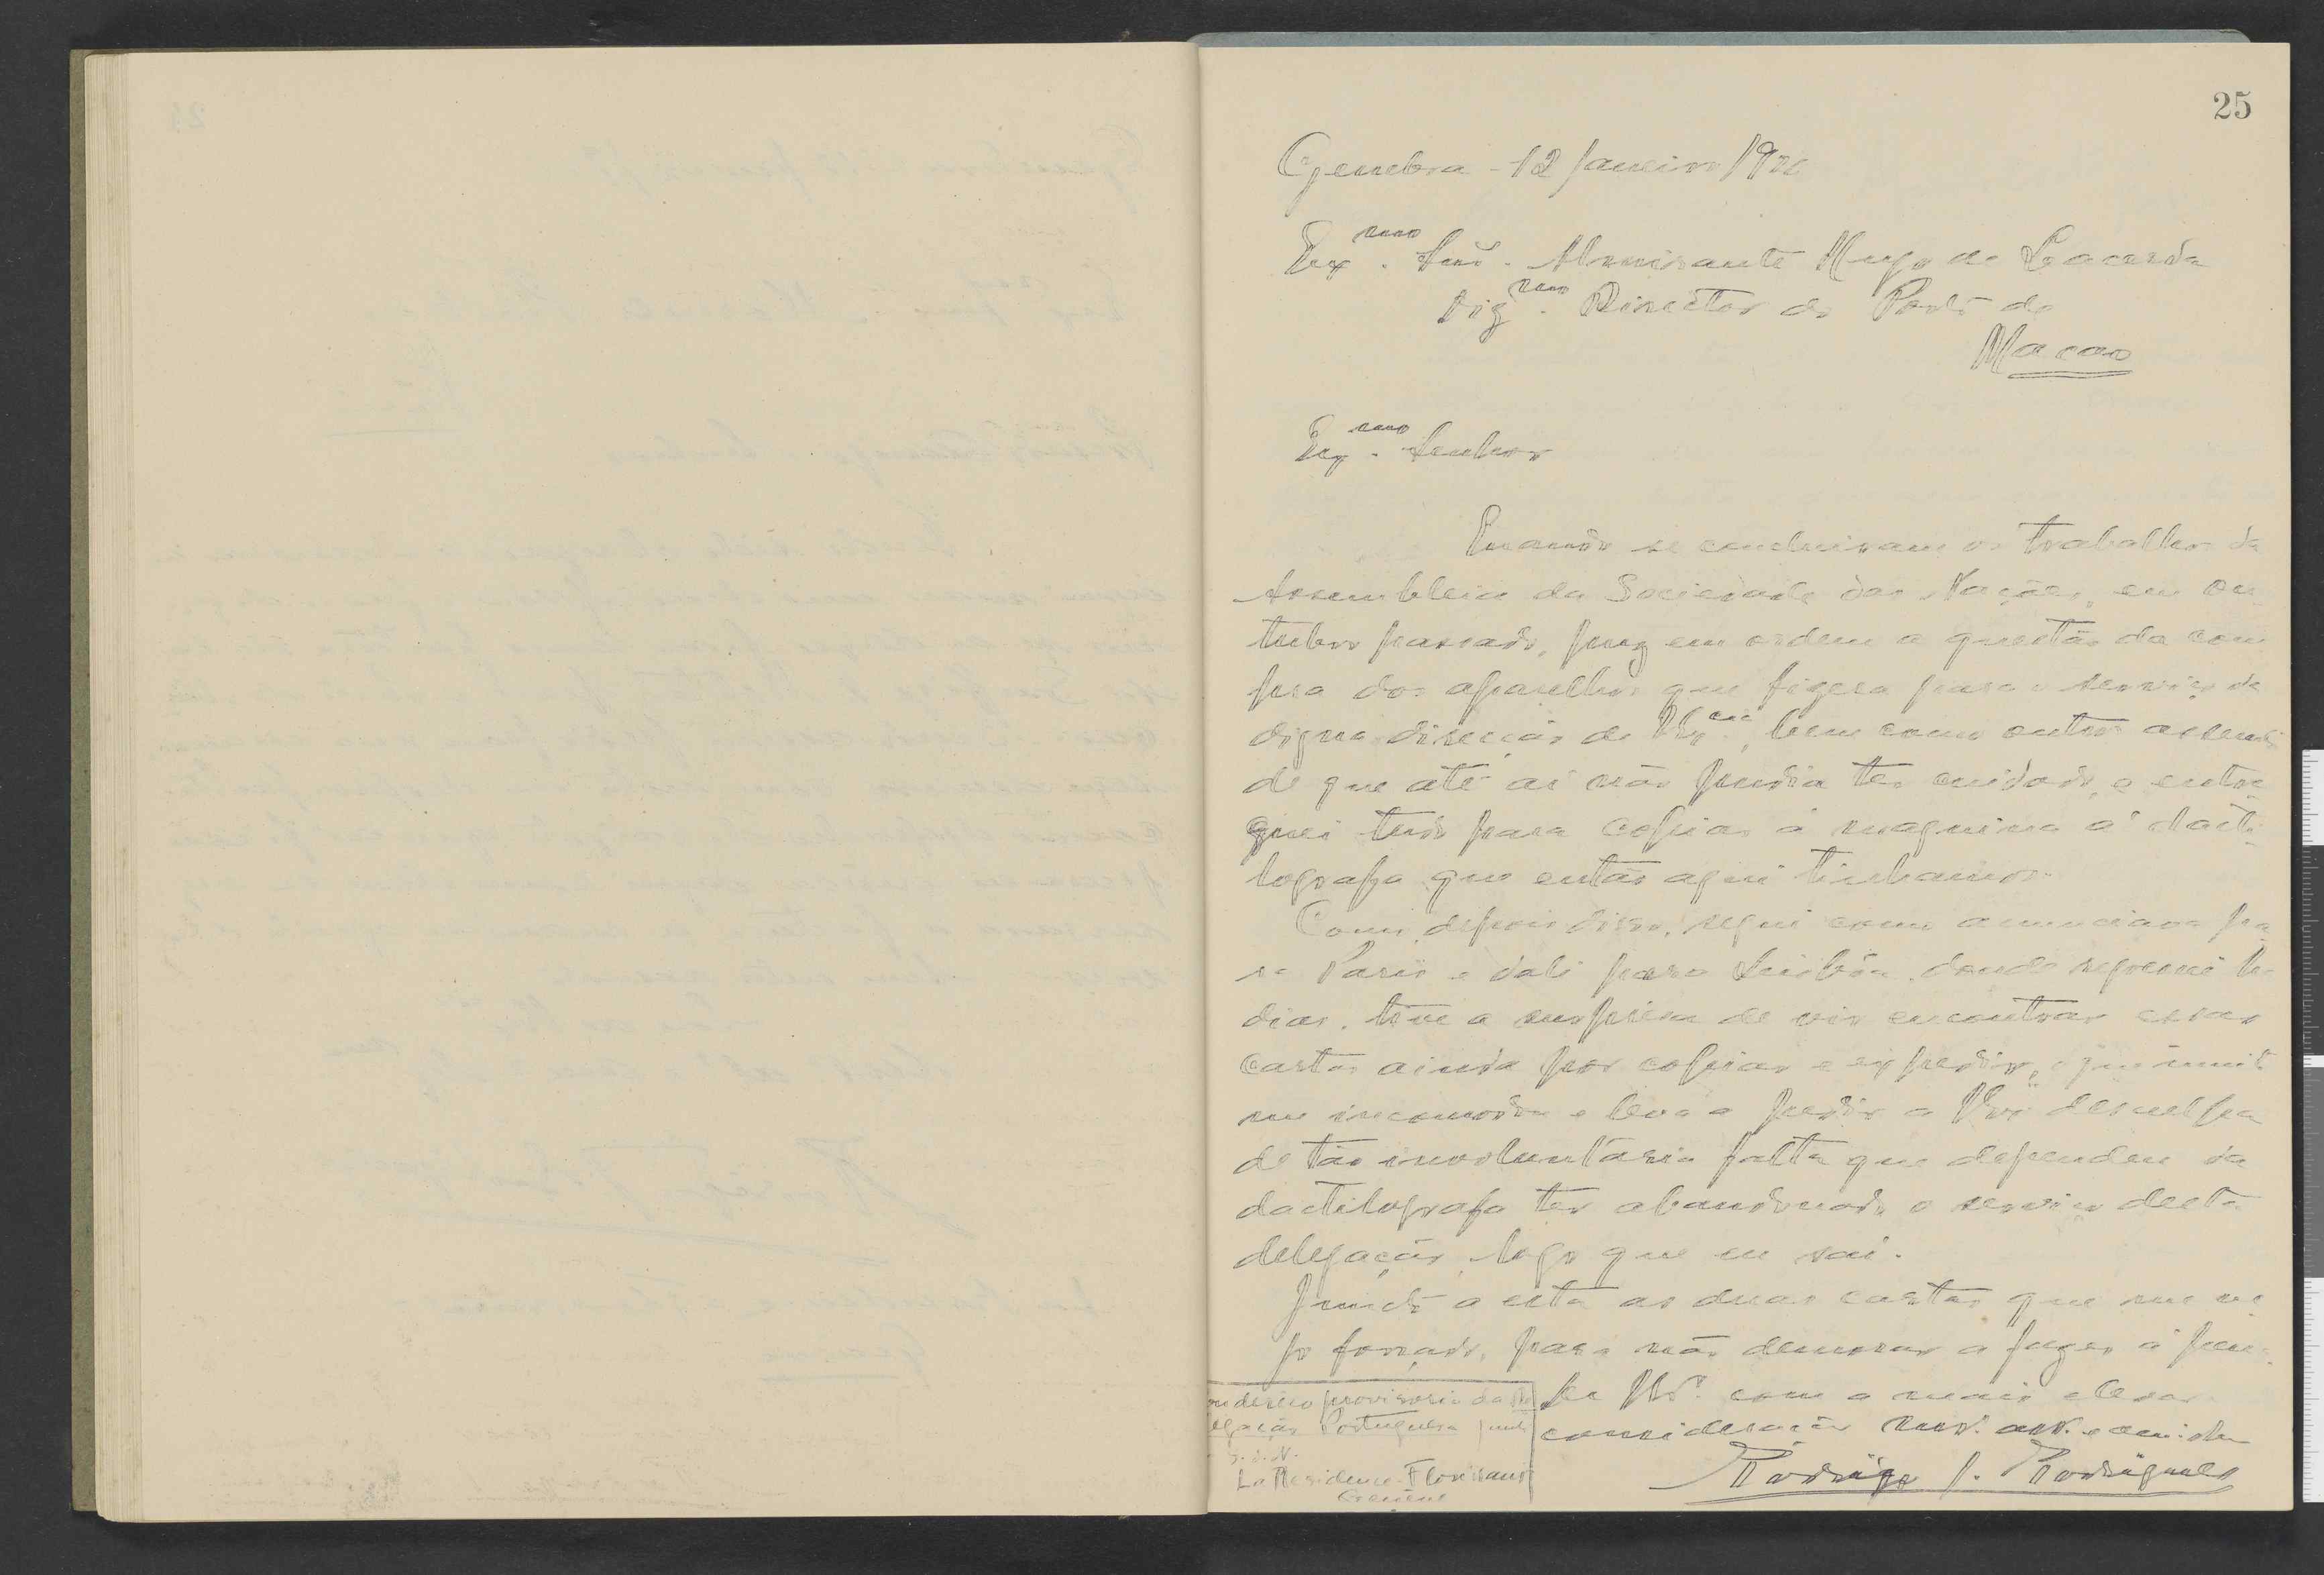 25
Genebra - 12 Janeiro 192
Ex.mo Snr. Almirante Hugo de Lacerda
Dig.mo Director do Porto de
Macao
Ex.mo Senhor
Quando se concluiram os trabalhos da
Assembleia da Sociedade das Nações, em ou-
tubro passado, puz em ordem a questão da com
pra dos aparelhos que fizera para o serviço da
digna direcção de V. Ex.cia, bem como outros assuntos
de que até aí não pudia ter cuidado, e entre-
guei tudo para copiar á maquina á dacti-
lografa que então aqui tinhamos.
Como, depois disso, segui como anunciara pa-
ra Paris e dali para Lisbôa donde regressei ha
dias, tive a surpresa de vir encontrar essas
cartas ainda por copiar e expedir, o que muito
me incomoda e leva a pedir a desculpa
de tão involuntária falta que dependeu da
dactilografa ter abandonado o serviço desta
delegação logo que eu saí.
Junto a esta as duas cartas que me ve-
jo forçado, para não demorar a fazer á pena.
De com a mais elevada
consideração
Rodrigo J. Rodrigues
endereço provisorio da De
legação Portuguesa junto
S. d. N.
La Residence - Florissant
Genève